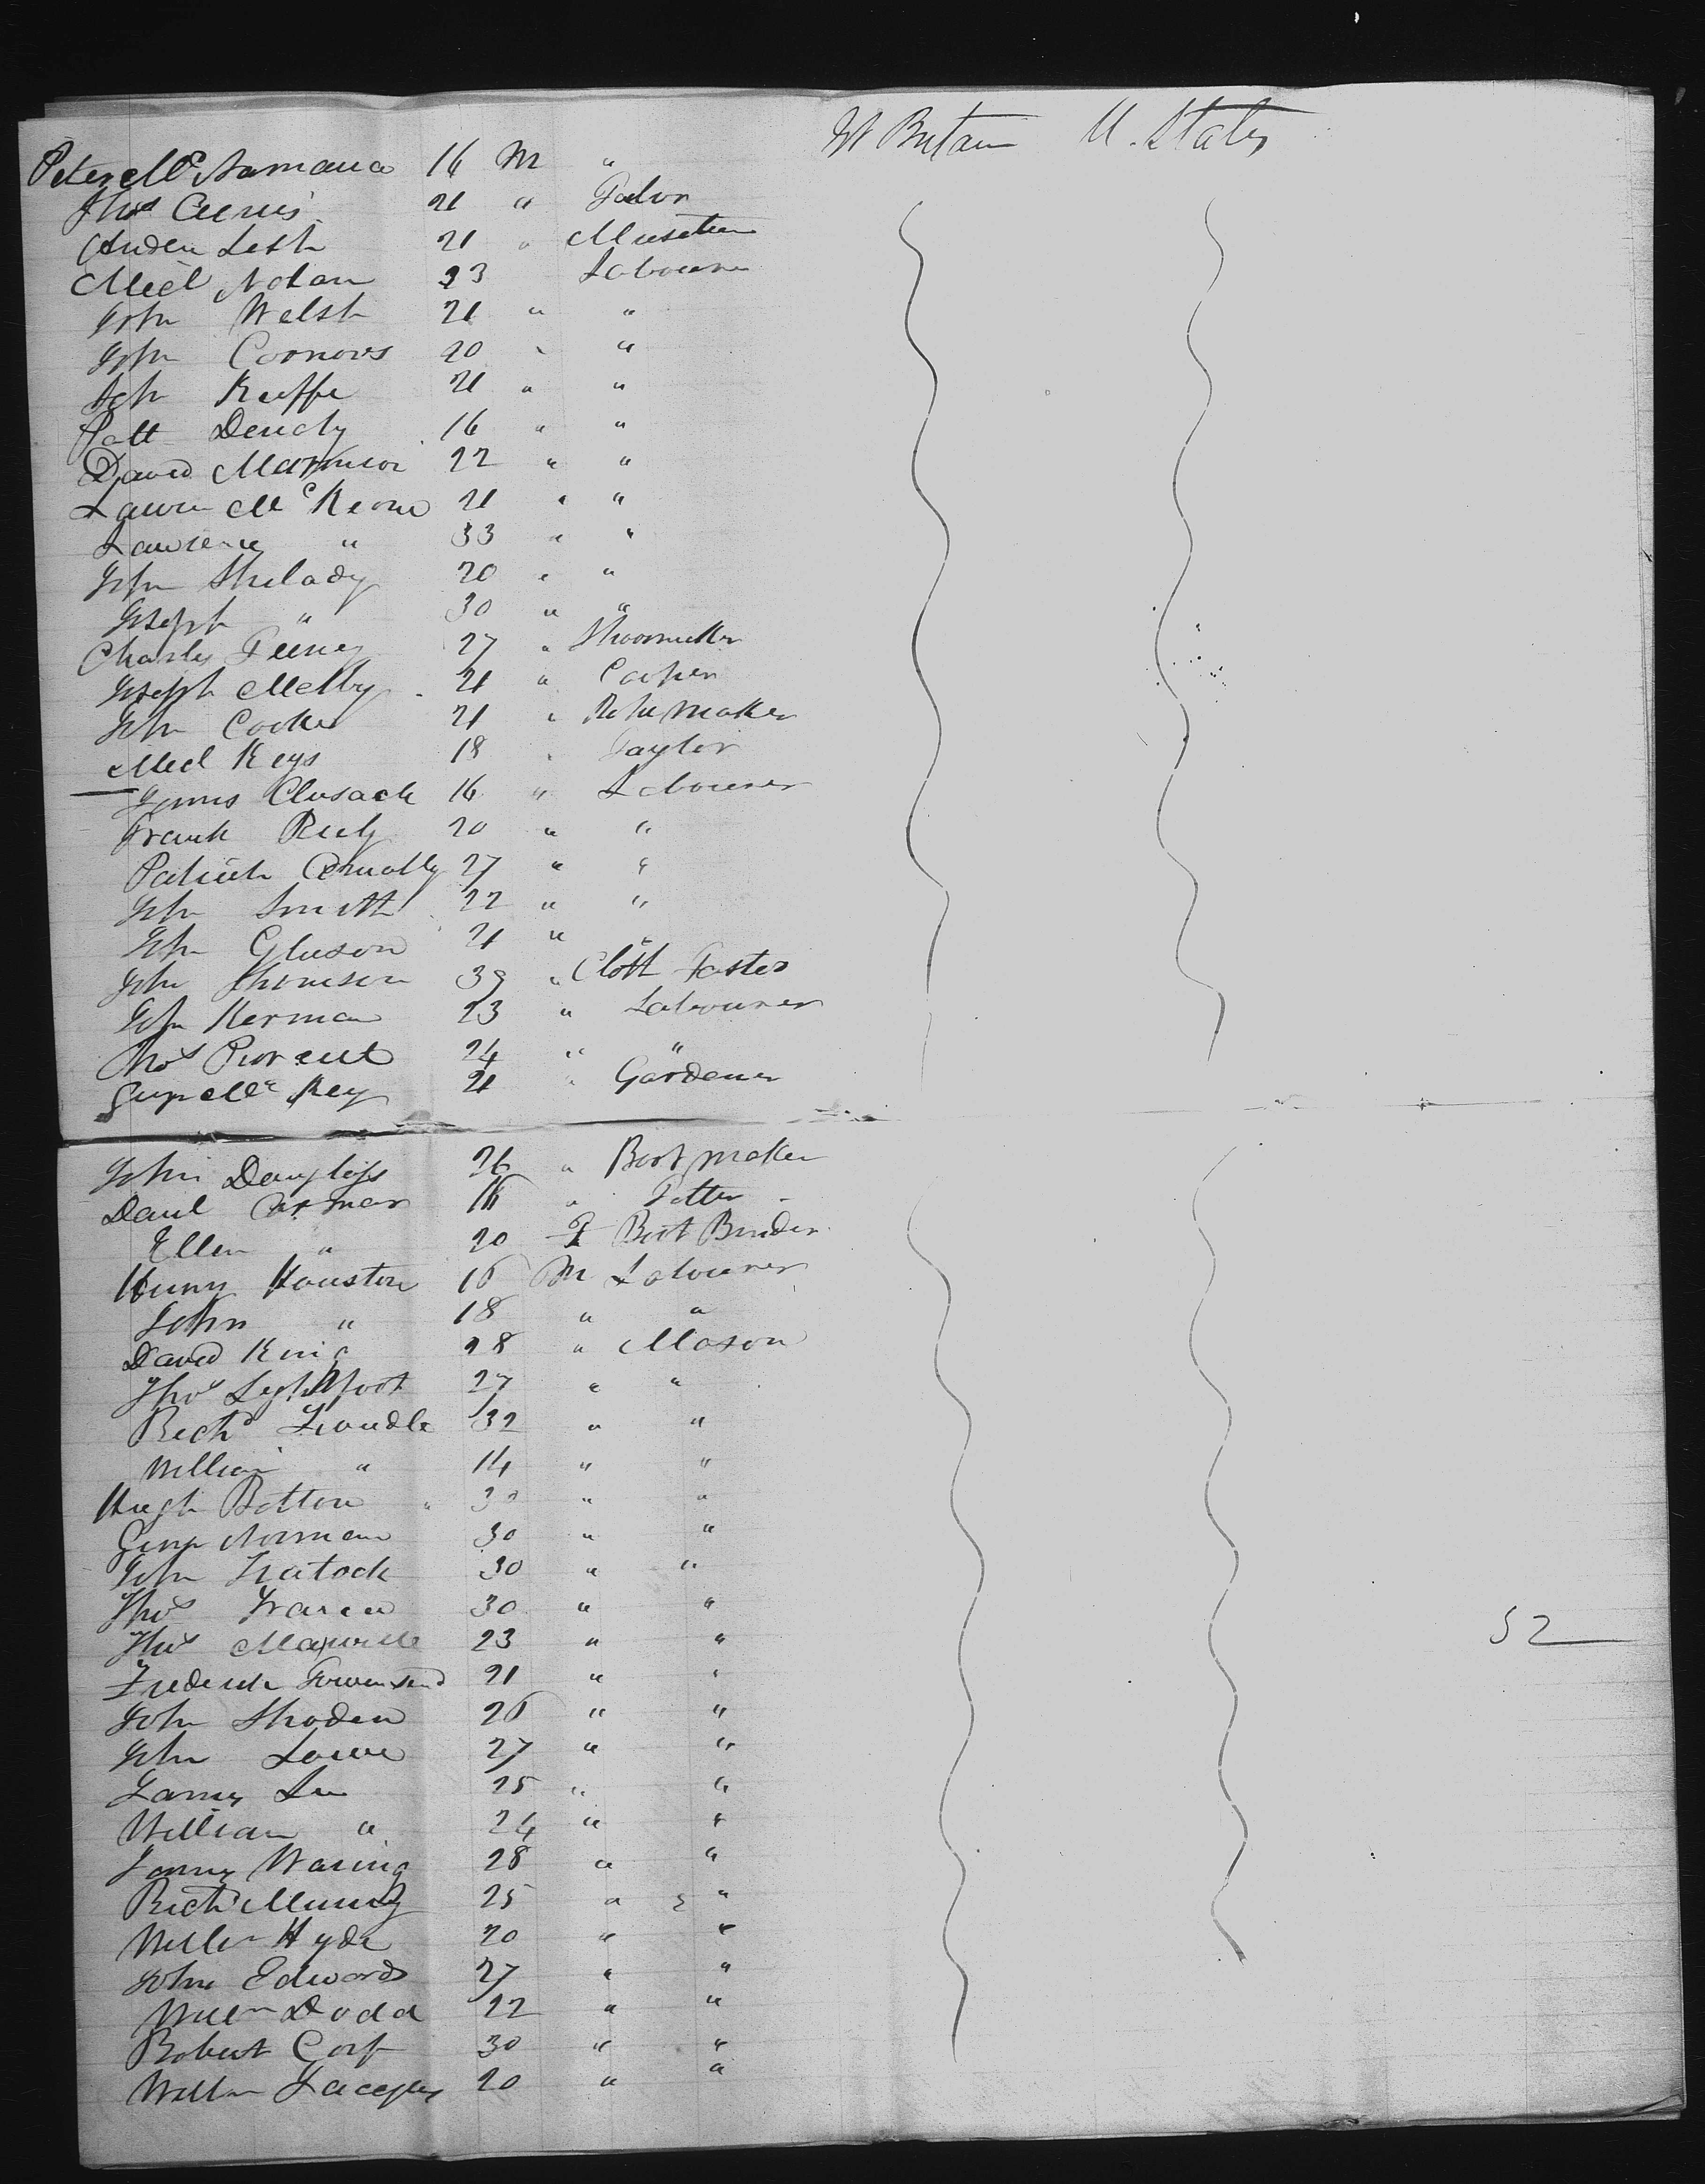 Gt Britain U. States
Peter Mc Namara 16 M "
Thos 21 " Tailor
21 " Musitian
Micl Nolan 23 Labourer
John Welsh 21 " "
John Connors 20 " "
John Keeffe 21 " "
Patt Dendy 16 " "
David 22 " "
Lawrn Mc Keone 21 " "
Lawrence " 33 " "
John Shelady 20 " "
Joseph " 30 " "
Charles Feeney 27 " Shoemaker
Joseph Melby 21 " Cooper
John Cooke 21 " maker
Micl Keys 18 " Taylor
James Clusack 16 " Labourer
Frank 20 " "
Patrick Connolly 27 " "
John Smith 22 " "
John Gleeson 21 " "
John Thomson 39 " Cloth
John Kerman 23 " Labourer
Thos 24 " "
Mc Key 21 " Gardener
John Douglass 26 " Boot maker
Danl 16 " Potter
Ellen " 20 F Boot Binder
Henry Houston 16 M Labourer
John " 18 " "
David King 28 " Mason
Thos Lightfoot 27 " "
Richd Trundle 32 " "
William " 14 " "
Hugh Botton " 30 " "
Norman 30 " "
John 30 " "
Thos 30 " "
52
Thos Maxwell 23 " "
Frederick Townsend 21 " "
John Shoden 26 " "
John Lowe 27 " "
James Lee 25 " "
William " 24 " "
James Waring 28 " "
Richd 25 " "
Willm Hyde 20 " "
John Edwards 27 " "
Willm Dodd 22 " "
Robert Corp 30 " "
Willm 20 " "